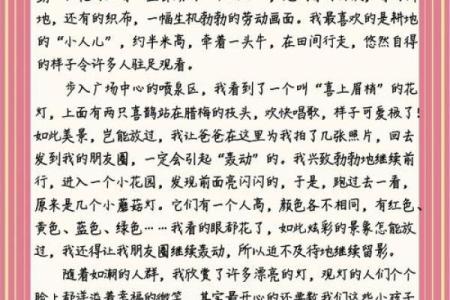 地，还有的织布，一幅生机勃勃的劳动画面。我最喜欢的是耕地
的“小人儿”，约半米高，牵着一头牛，在田间行走，悠然自得
的样子令许多人驻足观看。
步入广场中心的喷泉区，我看到了一个叫“喜上眉梢”的花
灯，上面有两只喜鹊站在腊梅的枝头，欢快唱歌，样子可爱极了！
如此美景，岂能放过，我让爸爸在这里为我拍了几张照片，回去
发到我的朋友圈，一定会引起“轰动”的。我兴致勃勃地继续前
行，进入一个小花园，发现前面亮闪闪的，于是，跑过去一看，
原来是几个小蘑菇灯。它们有一个人高，颜色各不相同，有红色、
黄色、蓝色、绿色……我看的眼都花了，如此炫彩的景象怎能放
过，我还得让我朋友圈继续轰动，所以迫不及待地继续留影。
随着如潮的人群，我欣赏了许多漂亮的灯，观灯的人们个个
脸上都洋溢着幸福的微笑，其实最开心的还要数我们这些小孩子